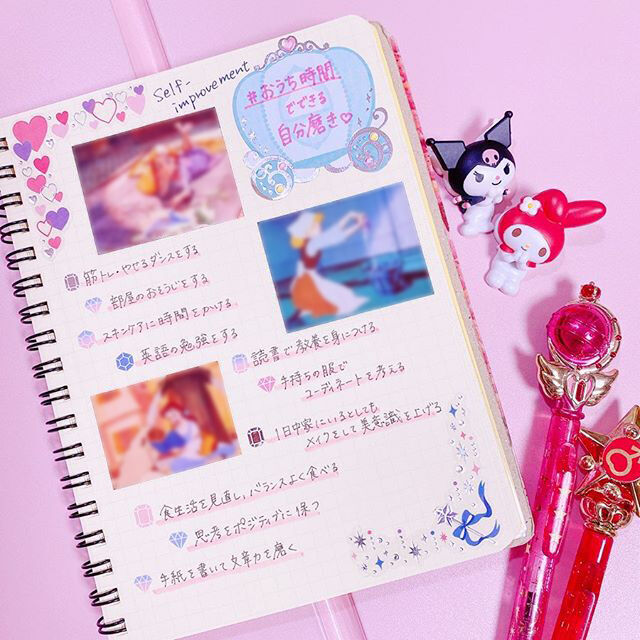 Self-
improvement
#おうち時間
でできる
自分磨き♡
筋トレ・やせるダンスをする
部屋のおそうじをする
スキンケアに時間をかける
英語の勉強をする
読書で教養を身につける
手持ちの服で
コーディネートを考える
1日中家にいるとしても
メイクをして美意識を上げる
食生活を見直し、バランスよく食べる
思考をポジティブに保つ
手紙を書いて文章力を磨く